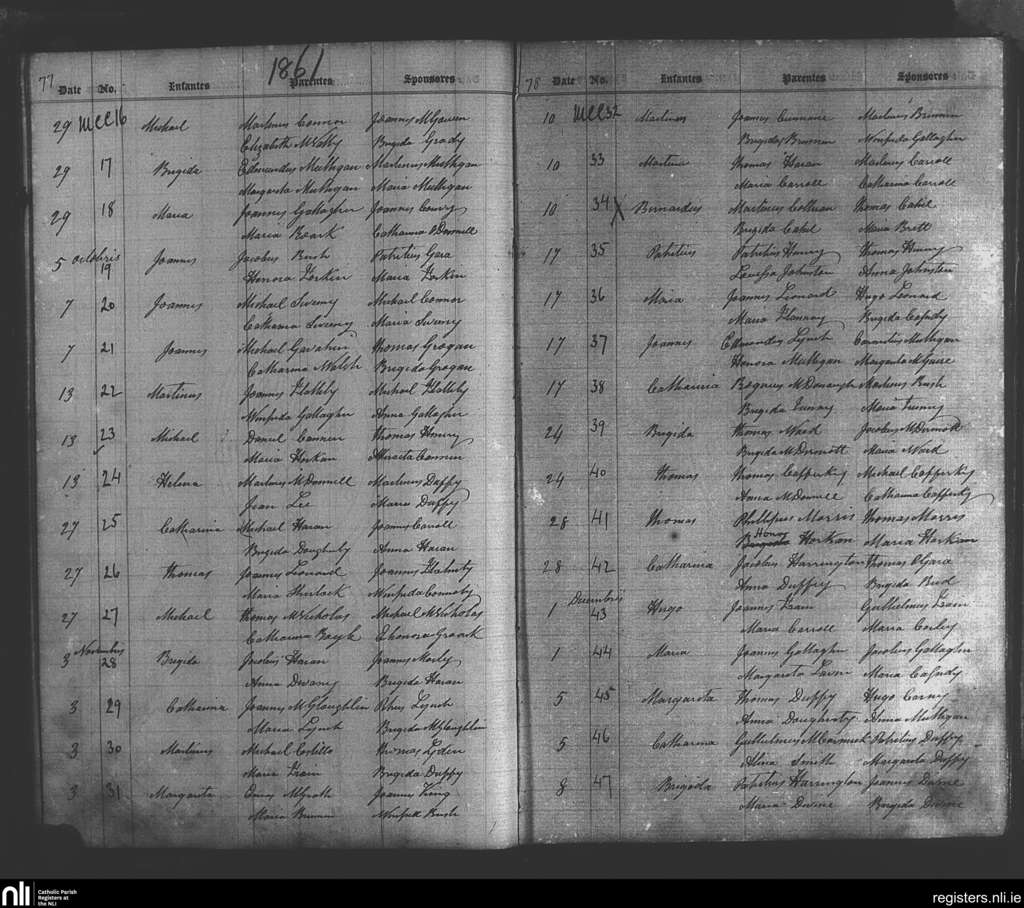 1861
77 Date No. Infantes Parentes Sponsores
29 MCC16 Michael Martinus Connor Joannes McGowen
Elizabeth McNally Brigida Grady
29 17 Brigida Edmundus Mulligan Martinus Mulligan
Margarita Mulligan Maria Mulligan
29 18 Maria Joannes Gallagher Joannes Conry
Maria Roark Catharina O'Donnell
5 Octobris 19 Joannes Jacobus Bush Patritius Gara
Honora Horkin Maria Horkin
7 20 Joannes Michael Sweeny Michael Connor
Catharina Sweeny Maria Sweeny
7 21 Joannes Michael Gavahin Thomas Grogan
Catharina Welsh Brigida Grogan
13 22 Martinus Joannes Flahby Michael Flahby
Winifrida Gallagher Anna Gallagher
13 23 Michael Daniel Cannen Thomas Henry
Maria Horkan Cannen
13 24 Helena Martinus McDonnell Martinus Duffy
Jean Lee Maria Duffy
27 25 Catharina Michael Haran Joannes Carroll
Brigida Dougherty Anna Haran
27 26 Thomas Joannes Leonard Joannes Flaherty
Maria Sherlock Winifrida Connolly
27 27 Michael Thomas McNicholas Michael McNicholas
Catharina Boyle Ehonora Groark
3 Novembris 28 Brigida Jacobus Haran Joannes Marly
Anna Devany Brigida Haran
3 29 Catharina Joannes McGloughlin Lynch
Maria Lynch Brigida McGloughlin
3 30 Martinus Michael Costello Thomas Lyden
Maria Brigida Duffy
3 31 Margarita McGrath Joannes King
Maria Winifrid Bush
78 Date No. Infantes Parentes Sponsores
10 MCC32 Martinus Joannes Cunnane Martinus Brennan
Brigida Brennan Winifrida Gallagher
10 33 Martinus Thomas Haran Martinus Carroll
Maria Carroll Catharina Carroll
10 34 X Bernardus Martinus Colman Thomas Cahil
Brigida Cahil Maria Brett
17 35 Patritius Patritius Henry Thomas Henry
Johnston Anna Johnston
17 36 Maria Joannes Leonard Hugo Leonard
Maria Flannery Brigida Cassidy
17 37 Joannes Edmundus Lynch Mulligan
Honora Mulligan Margarita McGuire
17 38 Catharina McDonough Martinus Bush
Brigida Feeney Maria Feeney
24 39 Brigida Thomas Ward Jacobus McDermott
Brigida McDermott Maria Ward
24 40 Thomas Thomas Cafferkey Michael Cafferkey
Anna McDonnell Catharina Cafferty
28 41 Thomas Phillipus Morris Thomas Morris
Honor Horkan Maria Horkan
28 42 Catharina Jacobus Harrington Thomas O'Gara
Anna Duffy Brigida
1 Decembris 43 Hugo Joannes Gulhelmus
Maria Carroll Maria Corley
1 44 Maria Joannes Gallagher Jacobus Gallagher
Margarita Maria Cassidy
5 45 Margarita Thomas Duffy Hugo Carney
Anna Dougherty Anna Mulligan
5 46 Catharina Gulhelmus McCormick Patritius Duffy
Smith Margarita Duffy
8 47 Brigida Patritius Harrington Joannes Devine
Maria Devine Brigida Devine
nli Catholic Parish
Registers at
the NLI
registers.nli.ie